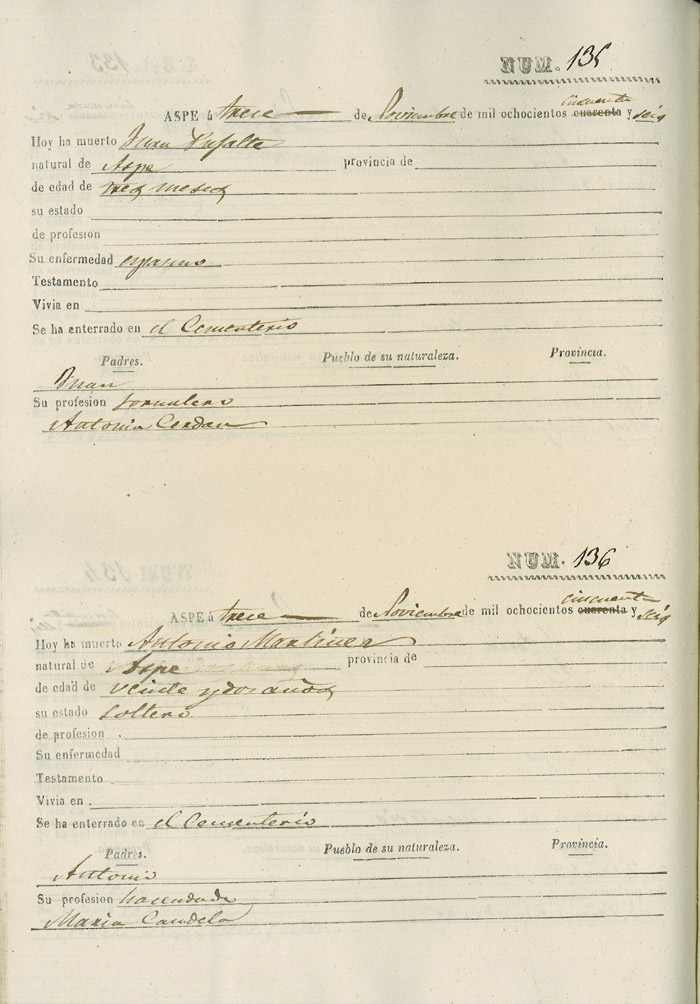 NUM. 135
cincuenta
ASPE á trece de Noviembre de mil ochocientos cuarenta y seis
Hoy ha muerto Juan Pujalte
natural de Aspe provincia de
de edad de tres meses
su estado
de profesion
Su enfermedad
Testamento
Vivia en
Se ha enterrado en el Cementerio
Padres. Pueblo de su naturaleza. Provincia.
Juan
Su profesion Jornalero
Antonia Cerdan
NUM. 136
cincuenta
ASPE á trece de Noviembre de mil ochocientos cuarenta y seis
Hoy ha muerto Antonio Martinez
natural de Aspe provincia de
de edad de veinte y dos años
su estado soltero
de profesion
Su enfermedad
Testamento
Vivia en
Se ha enterrado en el Cementerio
Padres. Pueblo de su naturaleza. Provincia.
Antonio
Su profesion hacendado
Maria Candela